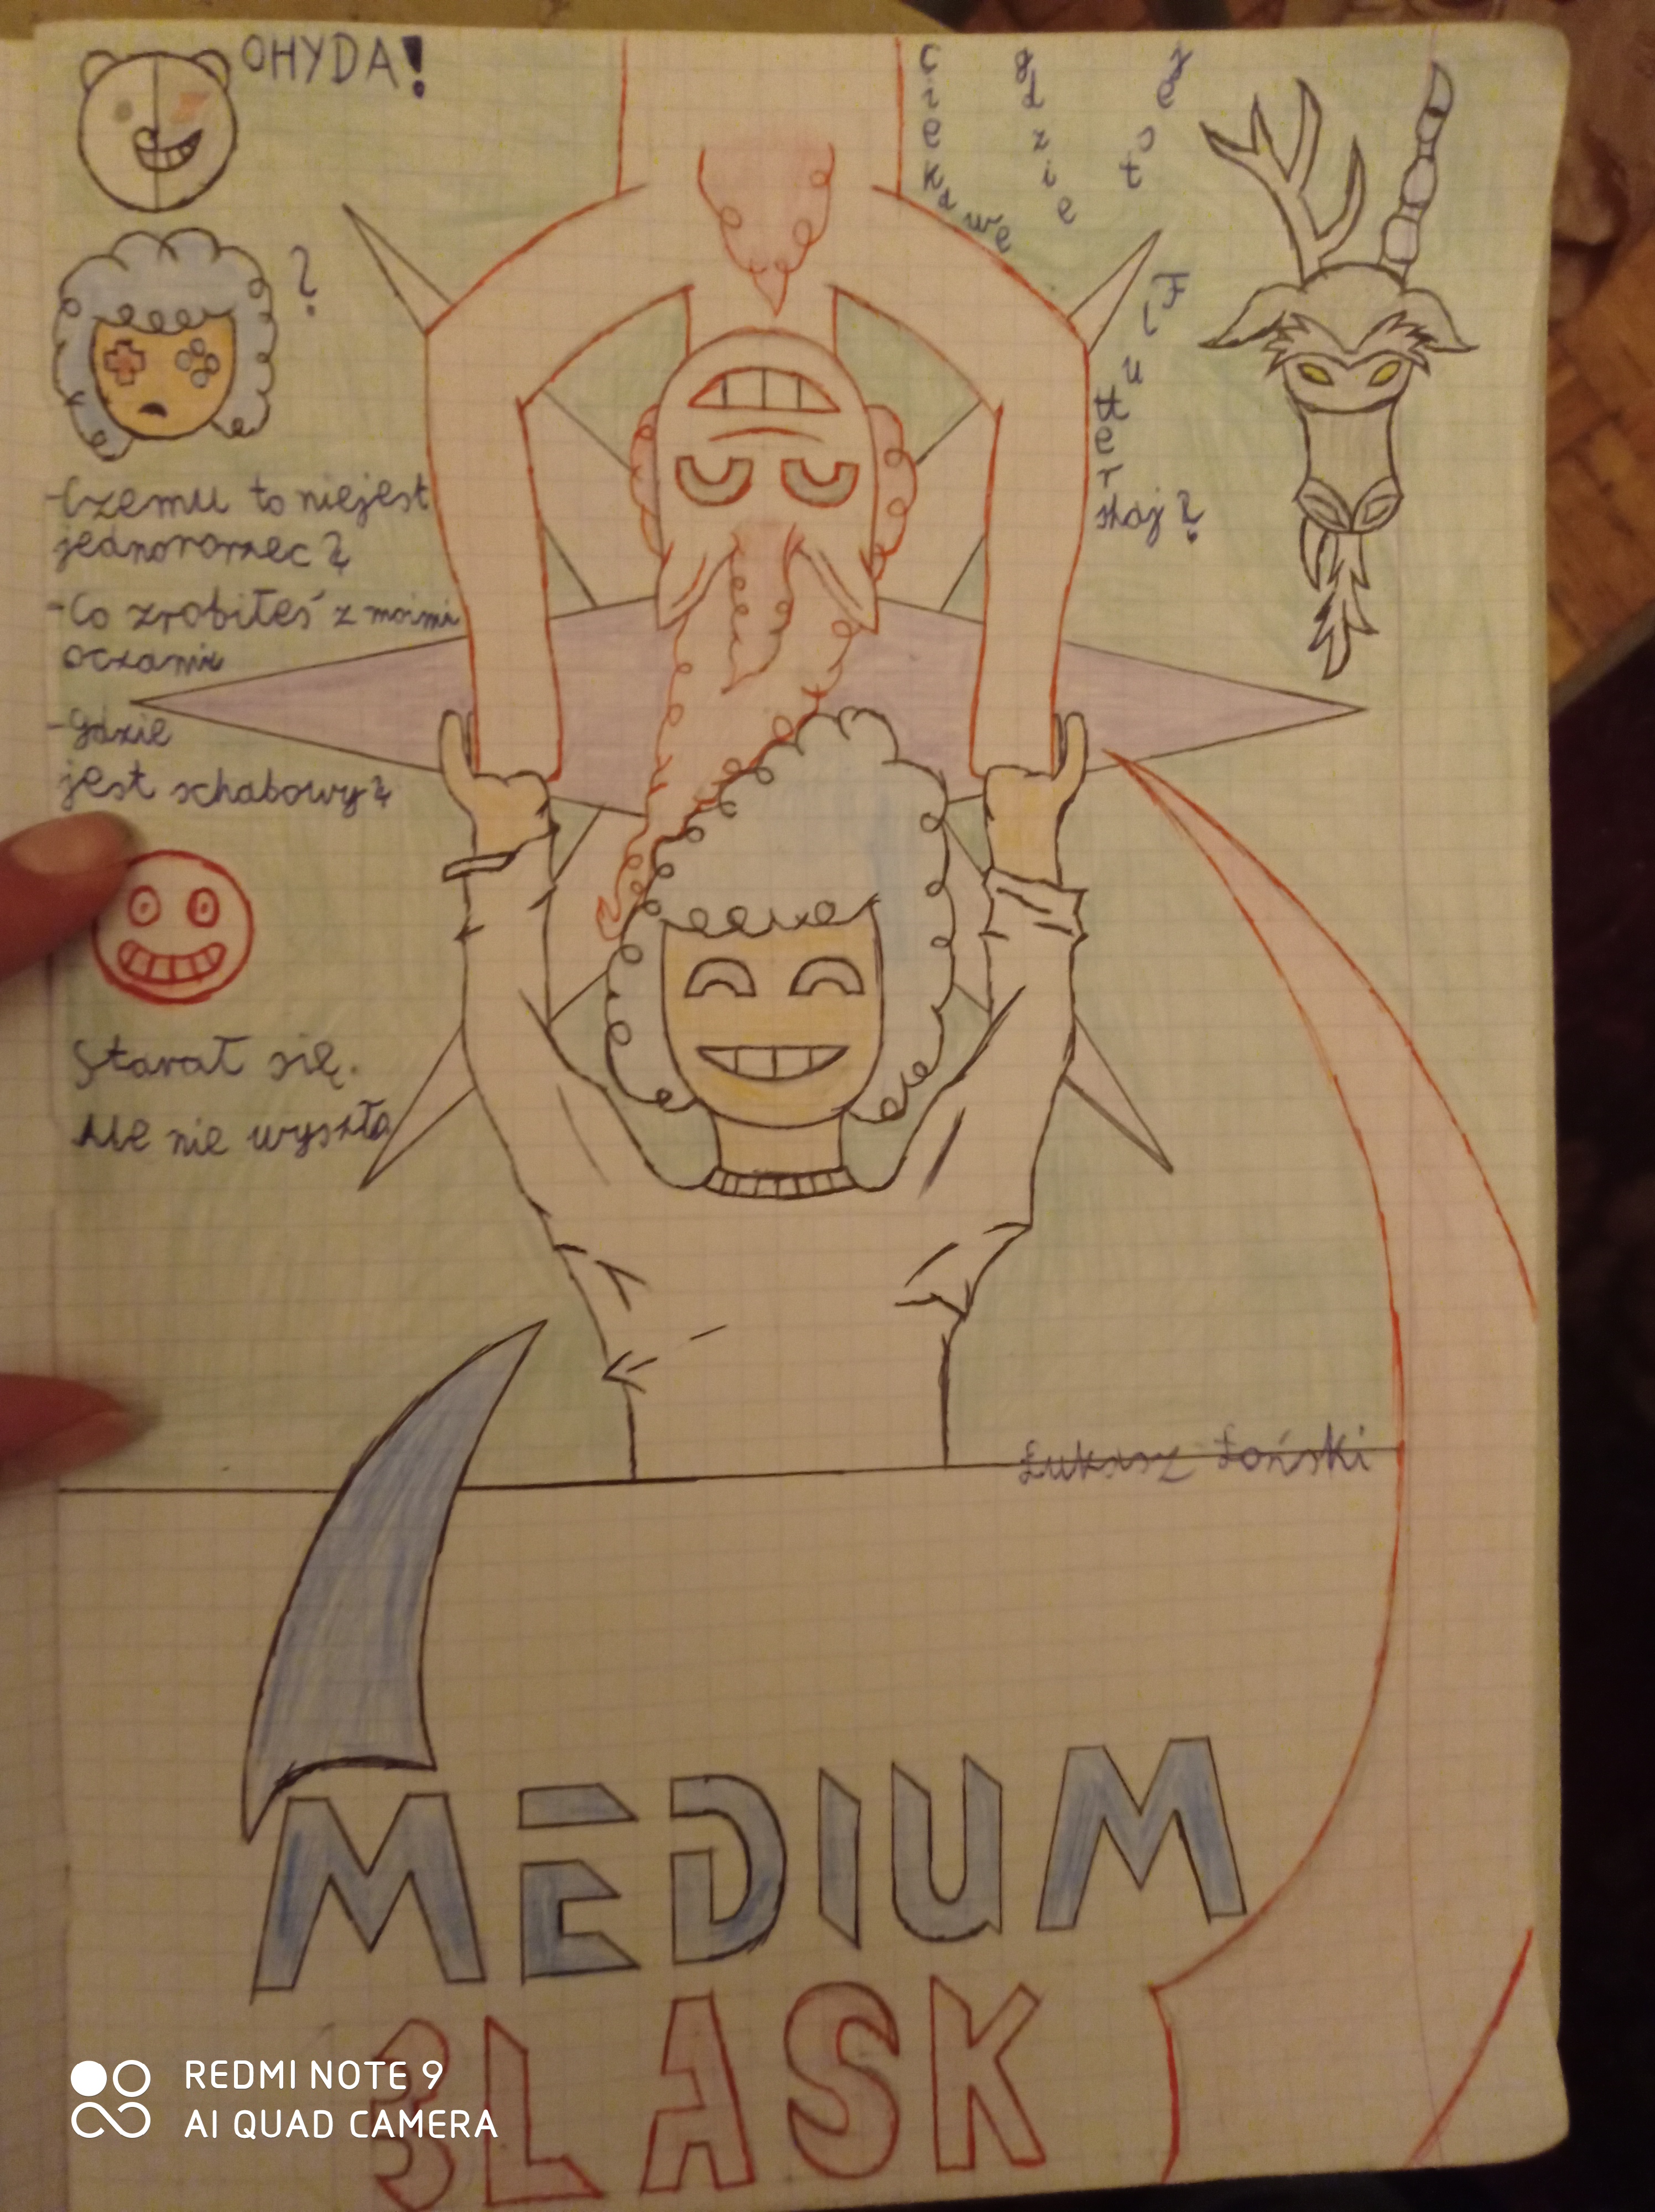 OHYDA!
?
-Czemu to niejest
jednorożec?
-Co zrobiłeś z moimi
oczami
-Gdzie
jest schabowy?
Starał się.
Ale nie wyszła
Ciekawe
gdzie
jest
Flutterskaj?
Łukasz Łoński
MEDIUM
BLASK
REDMI NOTE 9
AI QUAD CAMERA